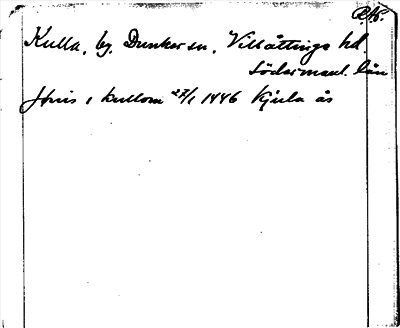 RA.
Kulla, by, Dunker sn, Villåttinge hd.
Södermanl. län
Jtnis i kullom 27/1 1446 Kjula ås